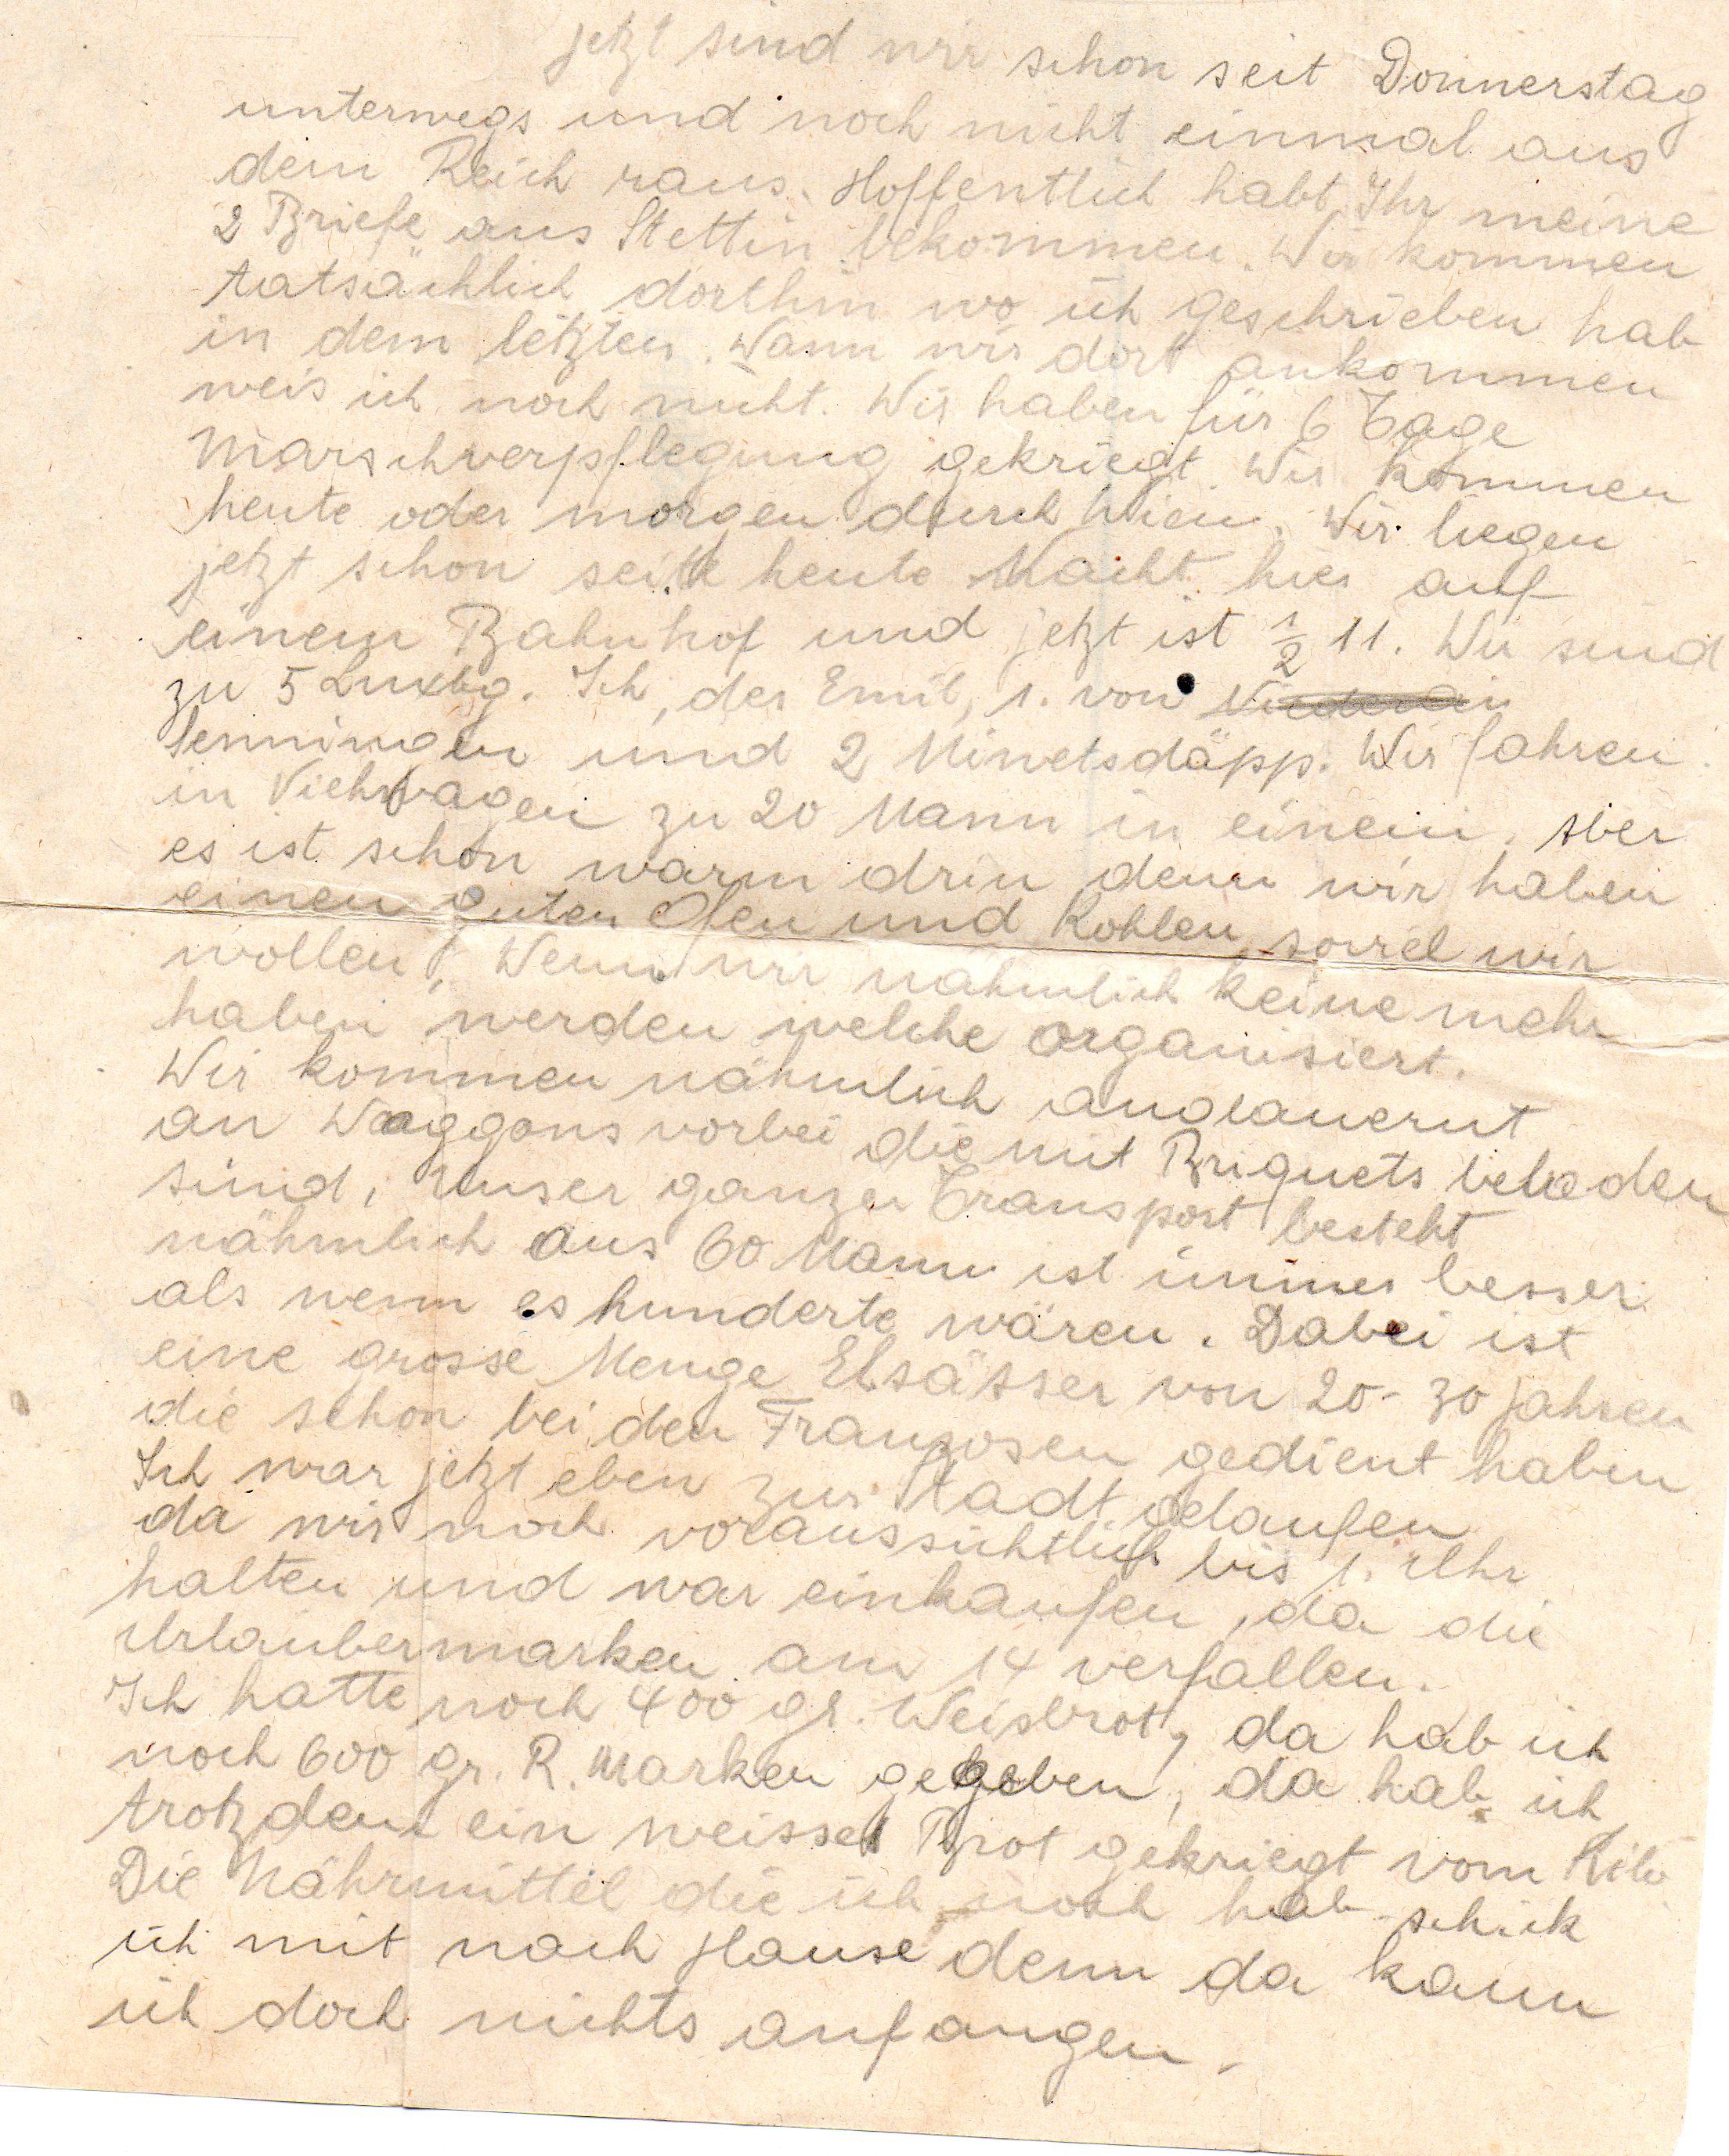 jetzt sind wir schon seit Donnerstag
unterwegs und noch nicht einmal aus
dem Reich raus. Hoffentlich habt Ihr meine
2 Briefe aus Stettin bekommen. Wir kommen
tatsächlich dorthin wo ich geschrieben hab
in dem letzten. Wann wir dort ankommen
weis ich noch nicht. Wir haben für 6 Tage
Marschverpflegung gekriegt. Wir kommen
heute oder morgen durch Wien. Wir liegen
jetzt schon seit heute Nacht hier auf
einem Bahnhof und jetzt ist ½ 11. Wir sind
zu 5 Luxbg. Ich, der Emil, 1. von
Senningen und 2 Minetsdäpp. Wir fahren
in Viehwagen zu 20 Mann in einem. Aber
es ist schön warm drin denn wir haben
einen guten Ofen und Kohlen soviel wir
wollen. Wenn wir nähmlich keine mehr
haben werden welche organisiert.
Wir kommen nähmlich andauernt
an Waggons vorbei die mit Briquets beladen
sind. Unser ganzer Transport besteht
nähmlich aus 60 Mann ist immer besser
als wenn es hunderte wären. Dabei ist
eine grosse Menge Elsässer von 20-30 jahren
die schon bei den Franzosen gedient haben
Ich war jetzt eben zur Stadt gelaufen
da wir noch voraussichtlich bis 1. Uhr
halten und war einkaufen, da die
Urlaubermarken am 14 verfallen.
Ich hatte noch 400 gr. Weisbrot, da hab ich
noch 600 gr. R. Marken gegeben, da hab ich
trotzdem ein weisses Brot gekriegt vom Kilo
Die Nährmittel die ich noch hab schick
ich mit nach Hause denn da kann
ich doch nichts anfangen.